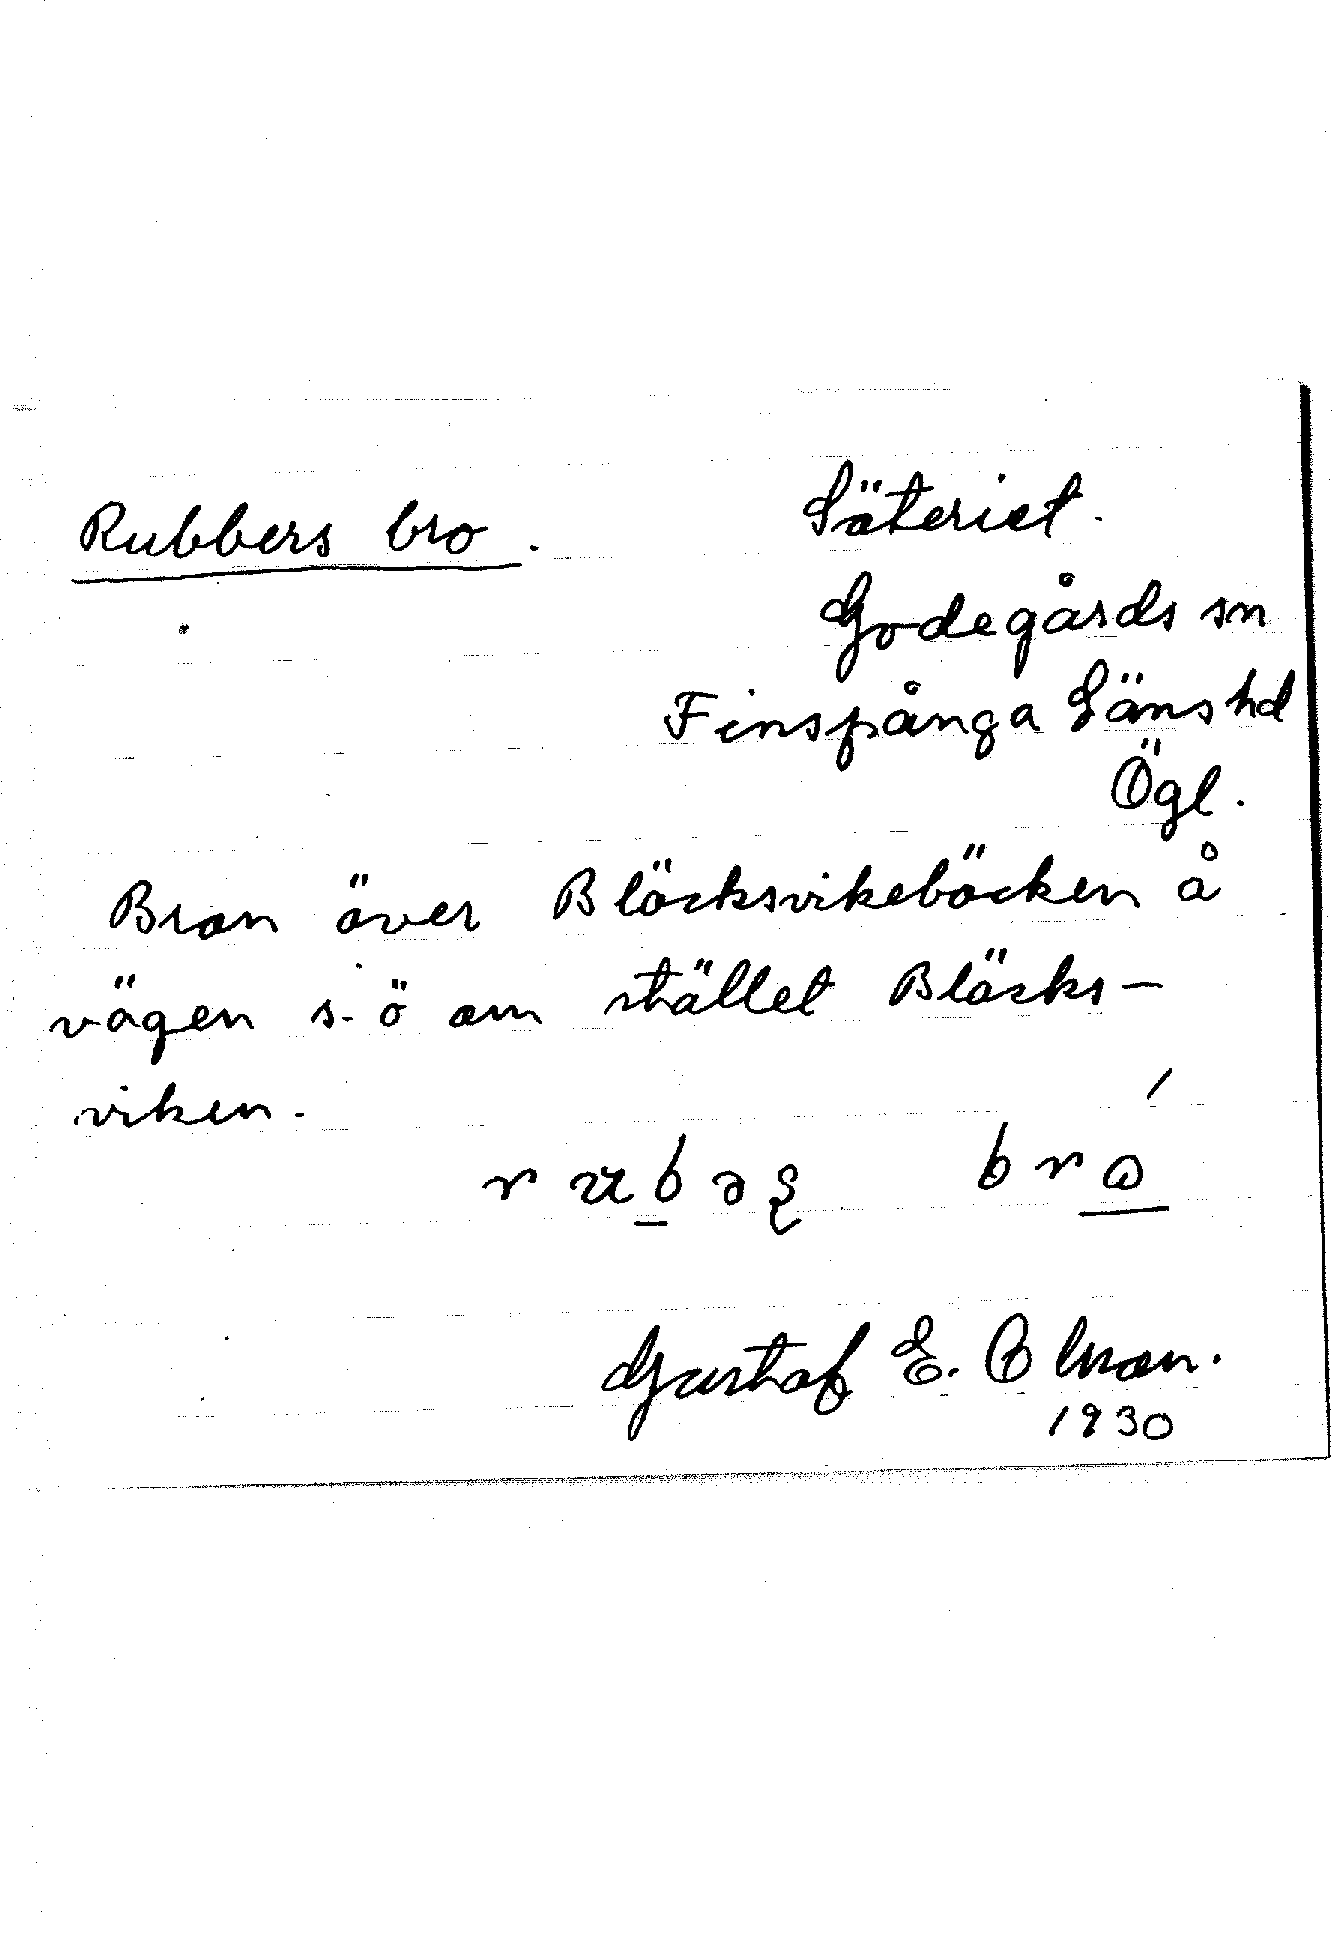 Rubbers bro.
Säteriet.
Godegårds sn
Finspånga Läns hd
Ögl.
Bron över Bläcksvikebäcken å
vägen s.ö om stället Bläcks-
viken.
Gustaf E. Olsson.
1930